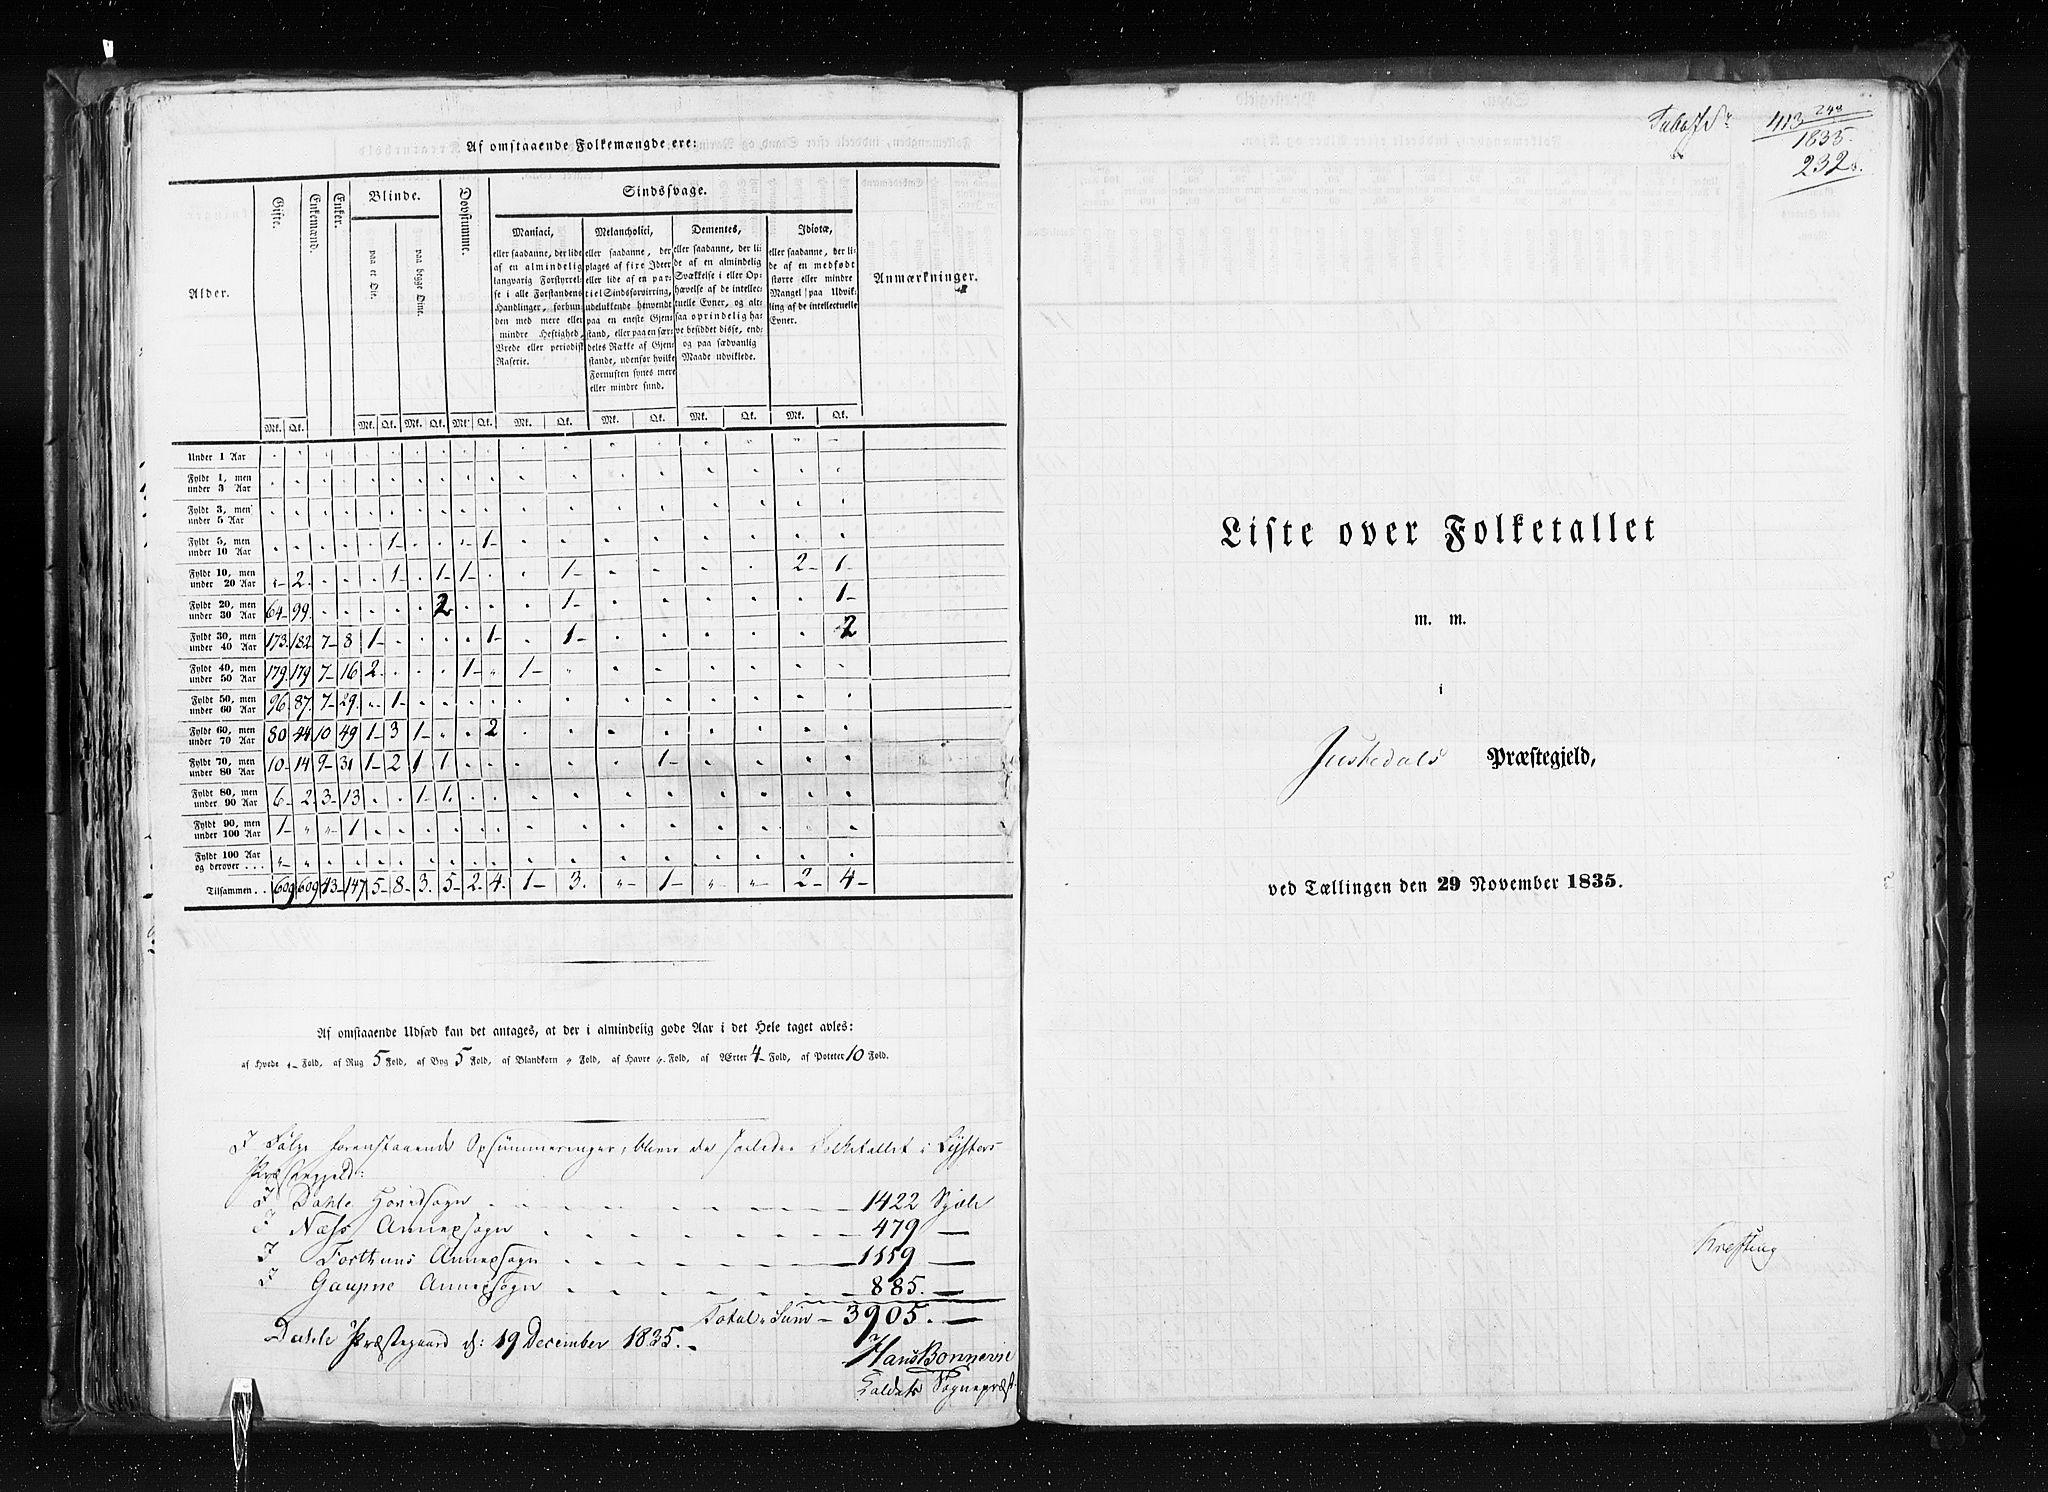 Af omstaaende Folkemængde ere:
Alder.
Gifte.
Enkemænd.
Enker.
Blinde.
paa et Øie.
paa begge Øine.
Døvstumme.
Sindssvage.
Maniaci,
eller saadanne, der lide
af en almindelig
langvarig Forstyrrel-
se i alle Forstandens
Handlinger, forbun-
den med mere eller
mindre Heftighed,
Vrede eller periodisk
Raserie.
Melancholici,
eller saadanne, der
plages af fixe Ideer
eller lide af en par-
tiel Sindsforvirring,
udelukkende henvendt
paa en eneste Gjen-
stand, eller paa en sær-
deles Række af Gjen-
stande, udenfor hvilke
Fornuften synes mere
eller mindre sund.
Dementes,
eller saadanne, der li-
de af en almindelig
Svækkelse i eller Op-
hævelse af de intellec-
tuelle Evner, og alt-
saa oprindelig ha-
ve besiddet disse, end-
og paa sædvanlig
Maade udviklede.
Idiotæ,
eller saadanne, der li-
de af en medfødt
større eller mindre
Mangel paa Udvik-
ling af de intellectuelle
Evner.
Anmærkninger.
Mk. Qk. Mk. Qk. Mk. Qk. Mk. Qk. Mk. Qk. Mk. Qk. Mk. Qk. Mk. Qk.
Under 1 Aar
Fyldt 1, men
under 3 Aar
Fyldt 3, men
under 5 Aar
Fyldt 5, men
under 10 Aar 1- 1-
Fyldt 10, men
under 20 Aar „- 2. 1- 1- 1- 1- 2- 1-
Fyldt 20, men
under 30 Aar 64- 99. 2 1- 1-
Fyldt 30, men
under 40 Aar 173. 182 7- 8 1- 1- 1- 2
Fyldt 40, men
under 50 Aar 179. 179 7- 16 2. 1- 1-
Fyldt 50, men
under 60 Aar 96. 87. 7- 29. 1-
Fyldt 60, men
under 70 Aar 80 44 10 49 1- 3 1- 2
Fyldt 70, men
under 80 Aar 10- 14 9- 31 1- 2 1 1. 1-
Fyldt 80, men
under 90 Aar 6- 2 3- 13 1 1.
Fyldt 90, men
under 100 Aar 1- „ „- 1
Fyldt 100 Aar
og derover . . . „-
Tilsammen . . 609 609 43- 147 5- 8- 3. 5- 2. 4. 1- 3. „- 1- „- „- 2- 4-
Af omstaaende Udsæd kan det antages, at der i almindelig gode Aar i det Hele taget avles:
af Hvede „- Fold, af Rug 5 Fold, af Byg 5 Fold, af Blandkorn „ Fold, af Havre „. Fold, af Ærter 4- Fold, af Poteter 10 Fold.
I Følge foranstaaende Opsummeringer, bliver da saaledes Folketallet i Lysters
Præstegjeld:
I Dahle Hovedsogn - - - - 1422 Sjæle
I Næss Annexsogn - - - - 479 —
I Forthuns Annexsogn - - - - 1119 —
I Gaupne Annexsogn - - - - 885. —
Total-Sum - 3905. —
Dahle Præstegaard d: 19 December 1835. -
Hans Bonnevie
Sognepræst
413 248
1835.
232
Liste over Folketallet
m. m.
i
Justedals Præstegjeld,
ved Tællingen den 29 November 1835.
Krefting